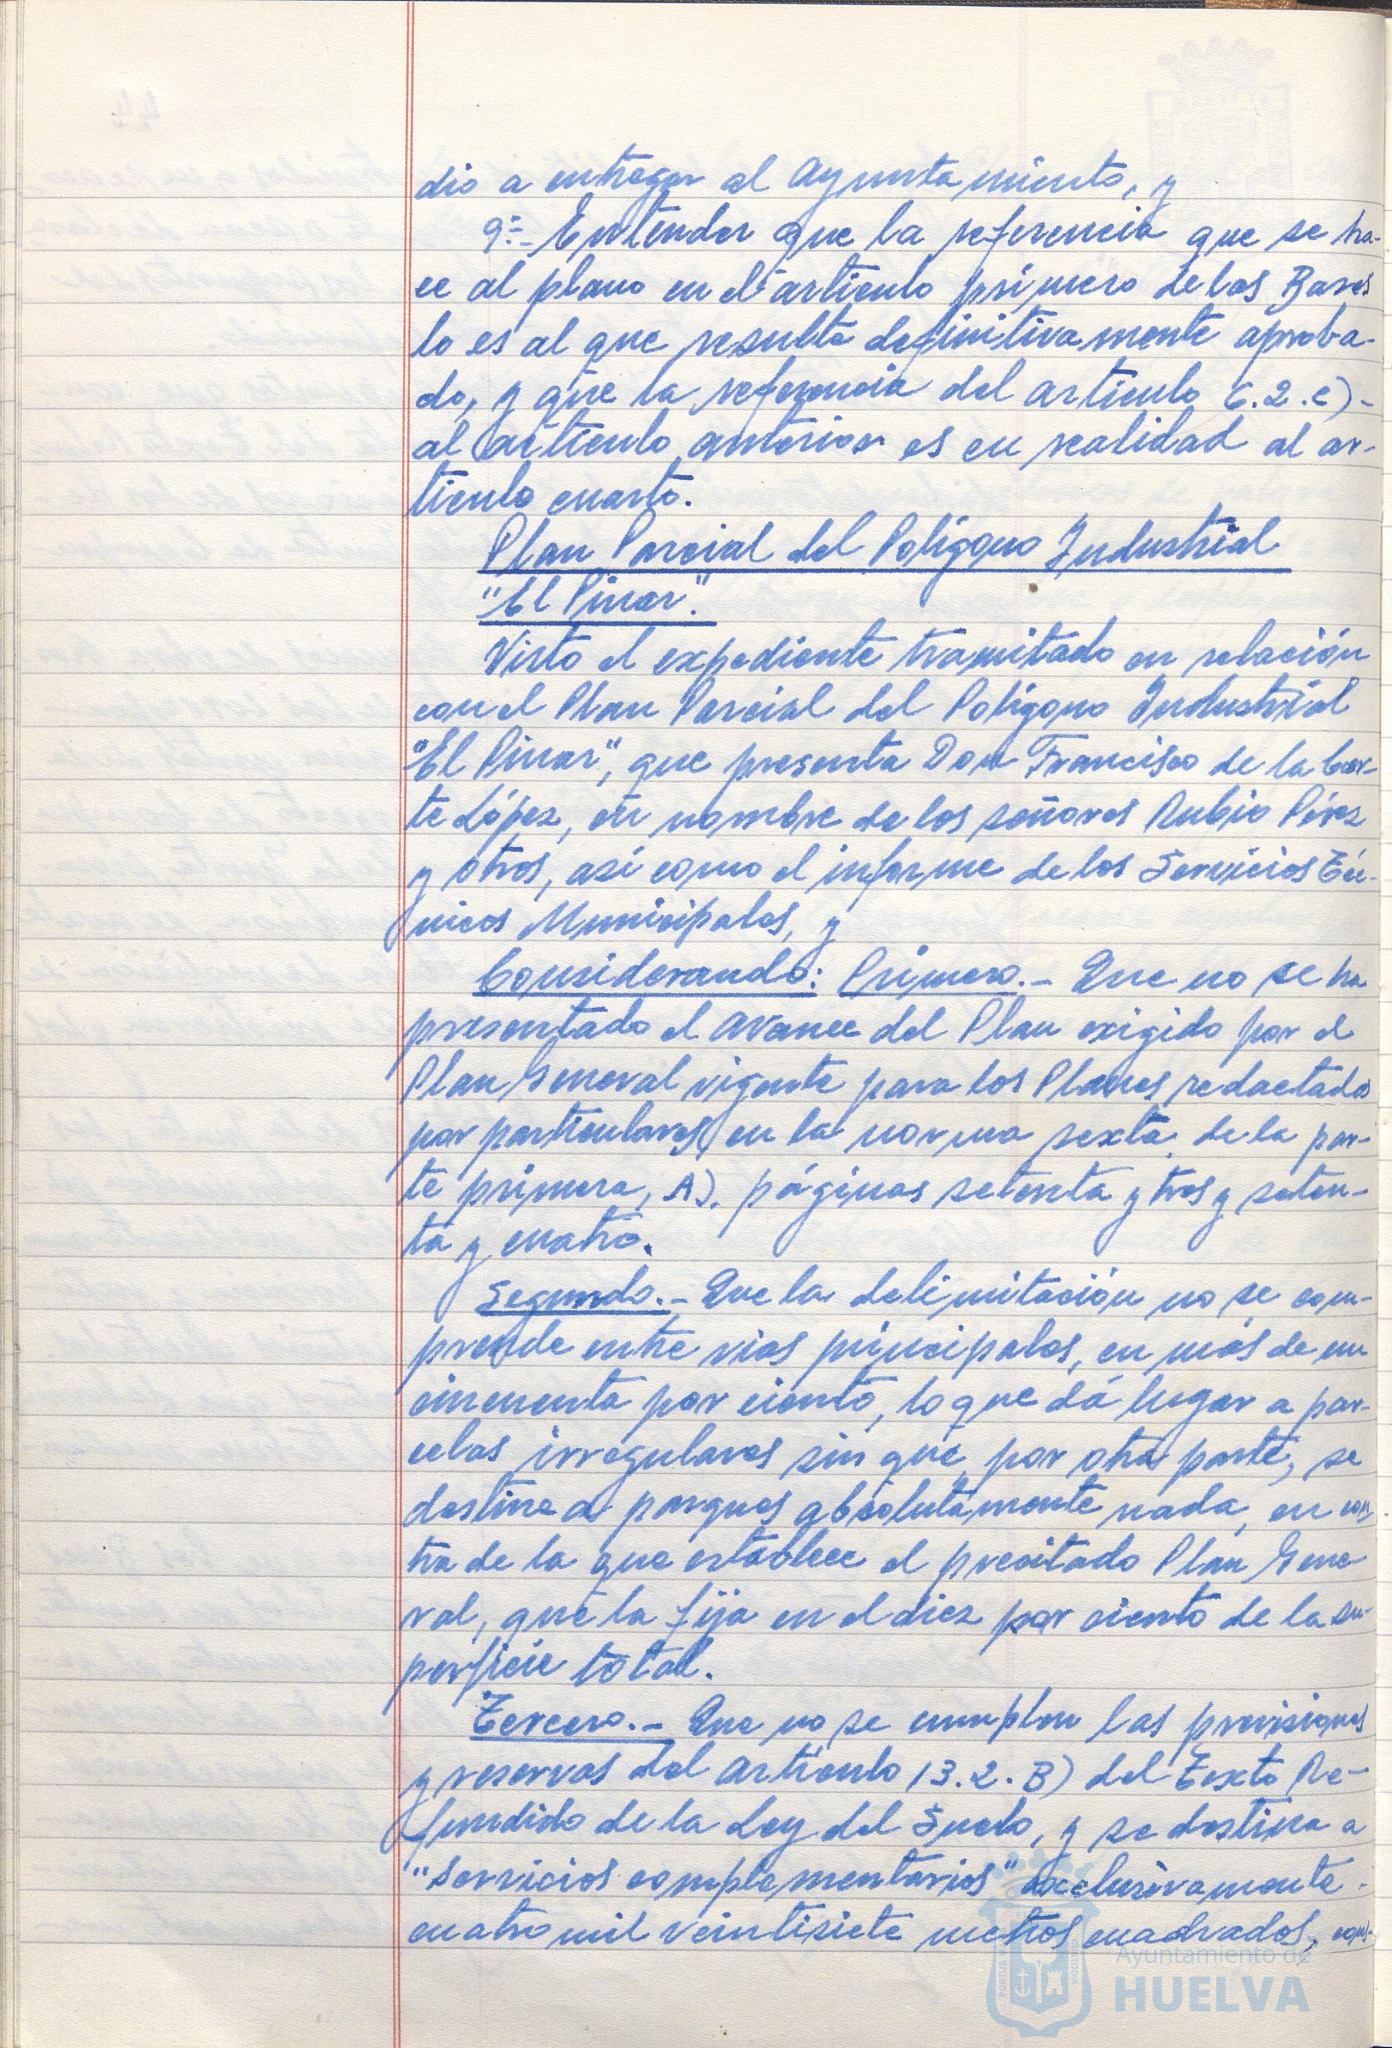 dio a entregar al Ayuntamiento, y
9º.- Entender que la referencia que se ha-
ce al plano en el artículo primero de las Bases
lo es al que resulte definitivamente aproba-
do, y que la referencia del artículo 6.2.c)-
al artículo anterior es en realidad al ar-
tículo cuarto.
Plan Parcial del Polígono Industrial
"El Pinar".
Visto el expediente tramitado en relación
con el Plan Parcial del Polígono Industrial
"El Pinar", que presenta Don Francisco de la Cor-
te López, en nombre de los señores Rubio Pérez
y otros, así como el informe de los Servicios Téc-
nicos Municipales, y
Considerando: Primero.- Que no se ha
presentado el Avance del Plan exigido por el
Plan General vigente para los Planes redactados
por particulares, en la norma sexta, de la par-
te primera, A). páginas setenta y tres y seten-
ta y cuatro.
Segundo.- Que la delimitación no se com-
prende entre vías principales, en más de un
cincuenta por ciento, lo que dá lugar a par-
celas irregulares sin que, por otra parte, se
destine a parques absolutamente nada, en con
tra de la que establece el precitado Plan Gene-
ral, que la fija en el diez por ciento de la su-
perficie total.
Tercero.- Que no se cumplen las previsiones
y reservas del artículo 13.2.B) del Texto Re-
fundido de la Ley del Suelo, y se destina a
"servicios complementarios" exclusivamente
cuatro mil veintisiete metros cuadrados,
Ayuntamiento de
HUELVA